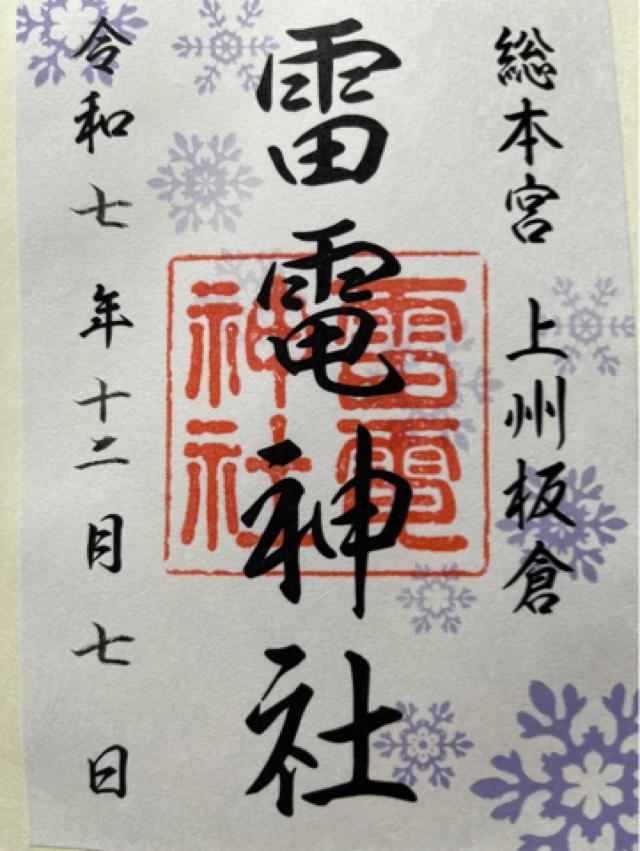 総本宮 上州板倉
雷電神社
雷電
神社
令和七年十二月七日